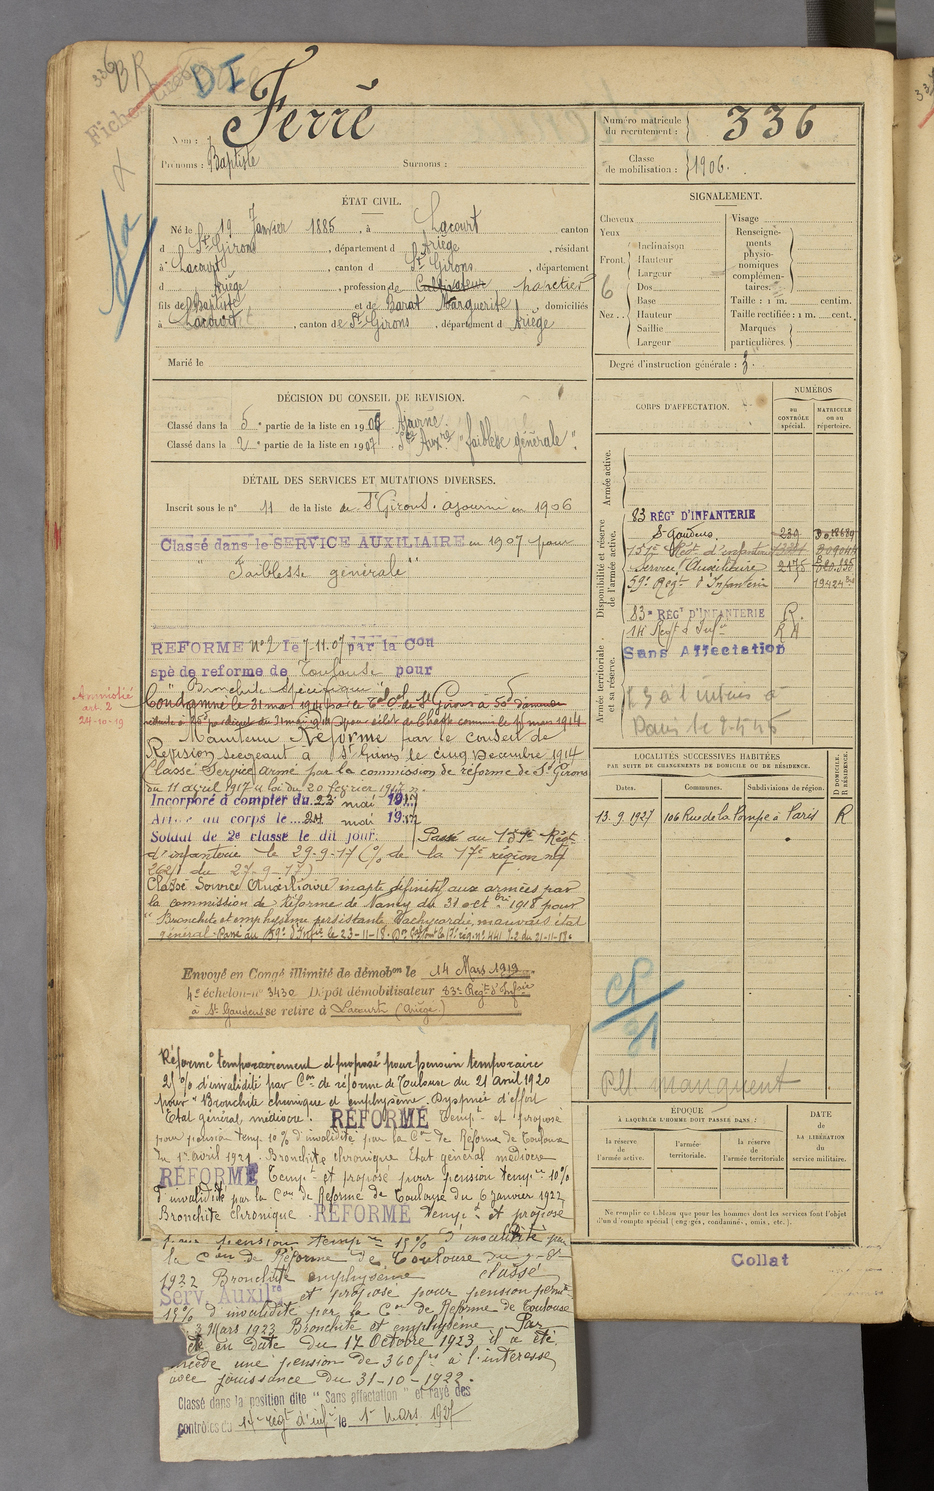 336
BR
DI
Fiche
Ferré
Nom :
Prénoms : Baptiste Surnoms :
Numéro matricule du recrutement : 336
Classe de mobilisation : 1906.
ÉTAT CIVIL.
Né le 19 Janvier 1885, à Lacourt canton
d St Girons, département d Ariège, résidant
à Lacourt, canton d St Girons, département
d Ariège, profession de Cultivateur
fils de Baptiste et de Barat Marguerite, domiciliés
à Lacourt, canton de St Girons, département d Ariège
Marié le
SIGNALEMENT.
Cheveux
Yeux
Front
Inclinaison
Hauteur
Largeur
Nez
Dos
Base
Hauteur
Saillie
Largeur
6
Visage
Renseignements physionomiques complémentaires.
Taille : 1 m. centim.
Taille rectifiée : 1 m. cent.
Marques particulières.
Degré d'instruction générale : 3.
DÉCISION DU CONSEIL DE REVISION.
Classé dans la 5e partie de la liste en 1906 Ajourné.
Classé dans la 2e partie de la liste en 1907. Sce Auxre "faiblesse générale".
DÉTAIL DES SERVICES ET MUTATIONS DIVERSES.
Inscrit sous le n° 11 de la liste de St Girons. ajourné en 1906
Classé dans le SERVICE AUXILIAIRE en 1907 pour
"Faiblesse générale"
REFORME N°2 le 7-11-07 par la Con
spe de reforme de Toulouse pour
"Bronchite spécifique"
Amnistié
art. 2
24-10-19
Condamné le 31 mars 1914 par le St Girons à 50f d'amende
Maintenu Réformé par le conseil de
Revision seegeant à St Girons le cinq Decembre 1914
Classé Service armé par la commission de réforme de St Girons
du 11 avril 1917 loi du 20 février 1917
Incorporé à compter du 23 mai 1917
Arrivé au corps le 24 mai 1917
Soldat de 2e classe le dit jour. Passé au 151e Régt
d'infanterie le 29-9-17 (% de la 17e région n°
du 27-9-17)
Classé Service Auxiliaire inapte définitif aux armées par
la commission de Réforme de Nancy du 31 octbre 1918 pour
"Bronchite et emphysème persistante tachycardie, mauvais état
général. Passé au 59e d'Infie le 23-11-18.
Envoyé en Congé illimité de démobon le 14 Mars 1919.
4e échelon n° 3430 Dépôt démobilisateur 83e Regt d'Infie
à St Gaudens se retire à Lacourt (Ariège.)
Réformé temporairement et proposé pour pension temporaire
25% d'invalidité par Con de réforme de Toulouse du 21 avril 1920
pour "Bronchite chronique et emphysème. Dyspnée d'effort
Etat général médiocre". RÉFORMÉ Tempt et proposé
pour pension temp. 10% d'invalidité par la Con de Réforme de Toulouse
du 1er avril 1921. Bronchite chronique Etat général médiocre
RÉFORMÉ Tempt et proposé pour pension tempre 10%
d'invalidité par la Con de Réforme de Toulouse du 6 janvier 1922
Bronchite chronique. RÉFORMÉ tempt et proposé
pour pension tempre 15% d'invalidité par
la Con de Réforme de Toulouse du
1922 Bronchite emphysème classé
Serv. Auxilre et proposé pour pension permte
15% d'invalidité par la Con de Réforme de Toulouse
3 Mars 1923 Bronchite et emphysème Par
en date du 17 Octobre 1923, il a été
une pension de 360 frs à l'intéressé
avec jouissance du 31-10-1922.
Classé dans la position dite "Sans affectation" et rayé des
contrôles du 14e régt d'infie le 1er Mars 1927
CORPS D'AFFECTATION.
NUMÉROS
au CONTRÔLE spécial.
MATRICULE ou au répertoire.
Armée active.
Disponibilité et réserve de l'armée active.
83 RÉGT D'INFANTERIE
St Gaudens. 239
151e Régt d'infanterie
Service Auxiliaire 2175
59e Régt d'Infanterie 19424
Armée territoriale et sa réserve.
83e RÉGT D'INFANTERIE R.
14 Regt d'Infie
Sans Affectation
LOCALITÉS SUCCESSIVES HABITÉES
PAR SUITE DE CHANGEMENTS DE DOMICILE OU DE RÉSIDENCE.
Dates. Communes. Subdivisions de région. D DOMICILE. R RÉSIDENCE.
13.9.1927 106 Rue de la Pompe à Paris R
manquent
ÉPOQUE
À LAQUELLE L'HOMME DOIT PASSER DANS :
la réserve de l'armée active.
l'armée territoriale.
la réserve de l'armée territoriale
DATE de LA LIBÉRATION du service militaire.
Ne remplir ce tableau que pour les hommes dont les services font l'objet
d'un décompte spécial (engagés, condamnés, omis, etc.).
Collat